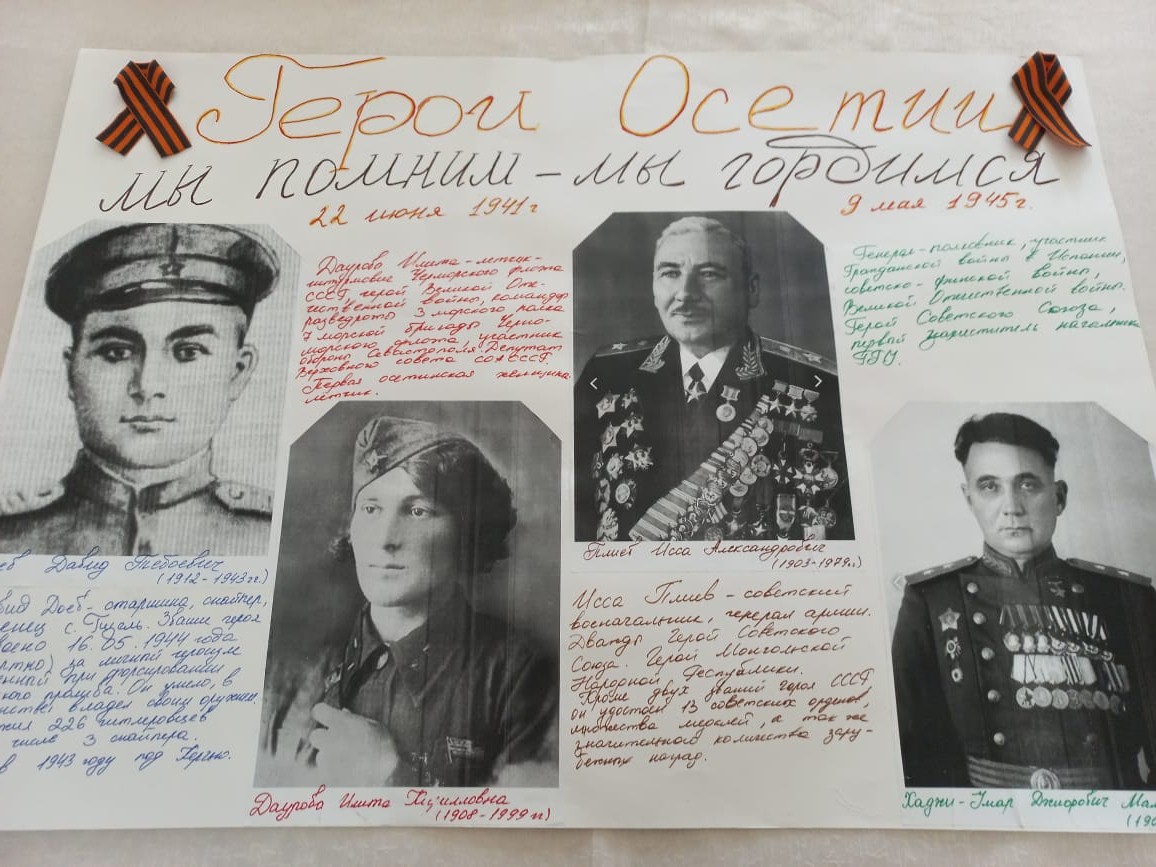 Герои Осетии
мы помним – мы гордимся
22 июня 1941г
9 мая 1945г.
Давид Тебоевич
(1912-1943гг.)
Доев - старшина, снайпер,
с. Гизель. Звание героя
16.05.1944 года
за личный героизм
при форсировании
пролива. Он умело, в
владел своим оружием.
226 гитлеровцев
числе 3 снайпера.
в 1943 году под Керчью.
Даурова Илита - летчик-
штурмовик Черморского флота
СССР, герой Великой Оте-
чественной войны, командир
разведроты 3 морского полка
7 морской бригады Черно-
морского флота, участник
обороны Севастополя. Депутат
Верховного совета СОАССР.
Первая осетинская женщина
летчик.
Даурова Илита
(1908-1999гг)
Плиев Исса Александрович
(1903-1979гг)
Исса Плиев - советский
военачальник, генерал армии.
Дважды Герой Советского
Союза. Герой Монгольской
Народной Республики.
Кроме двух званий героя СССР
он удостоен 13 советских орденов,
множества медалей, а так же
значительного количества зару-
бежных наград.
Генерал-полковник, участник
Гражданской войны в Испании,
советско-финской войны,
Великой Отечественной войны.
Герой Советского Союза,
первый заместитель начальника
ГРУ.
Хаджи-Умар Джиорович Мам
(190